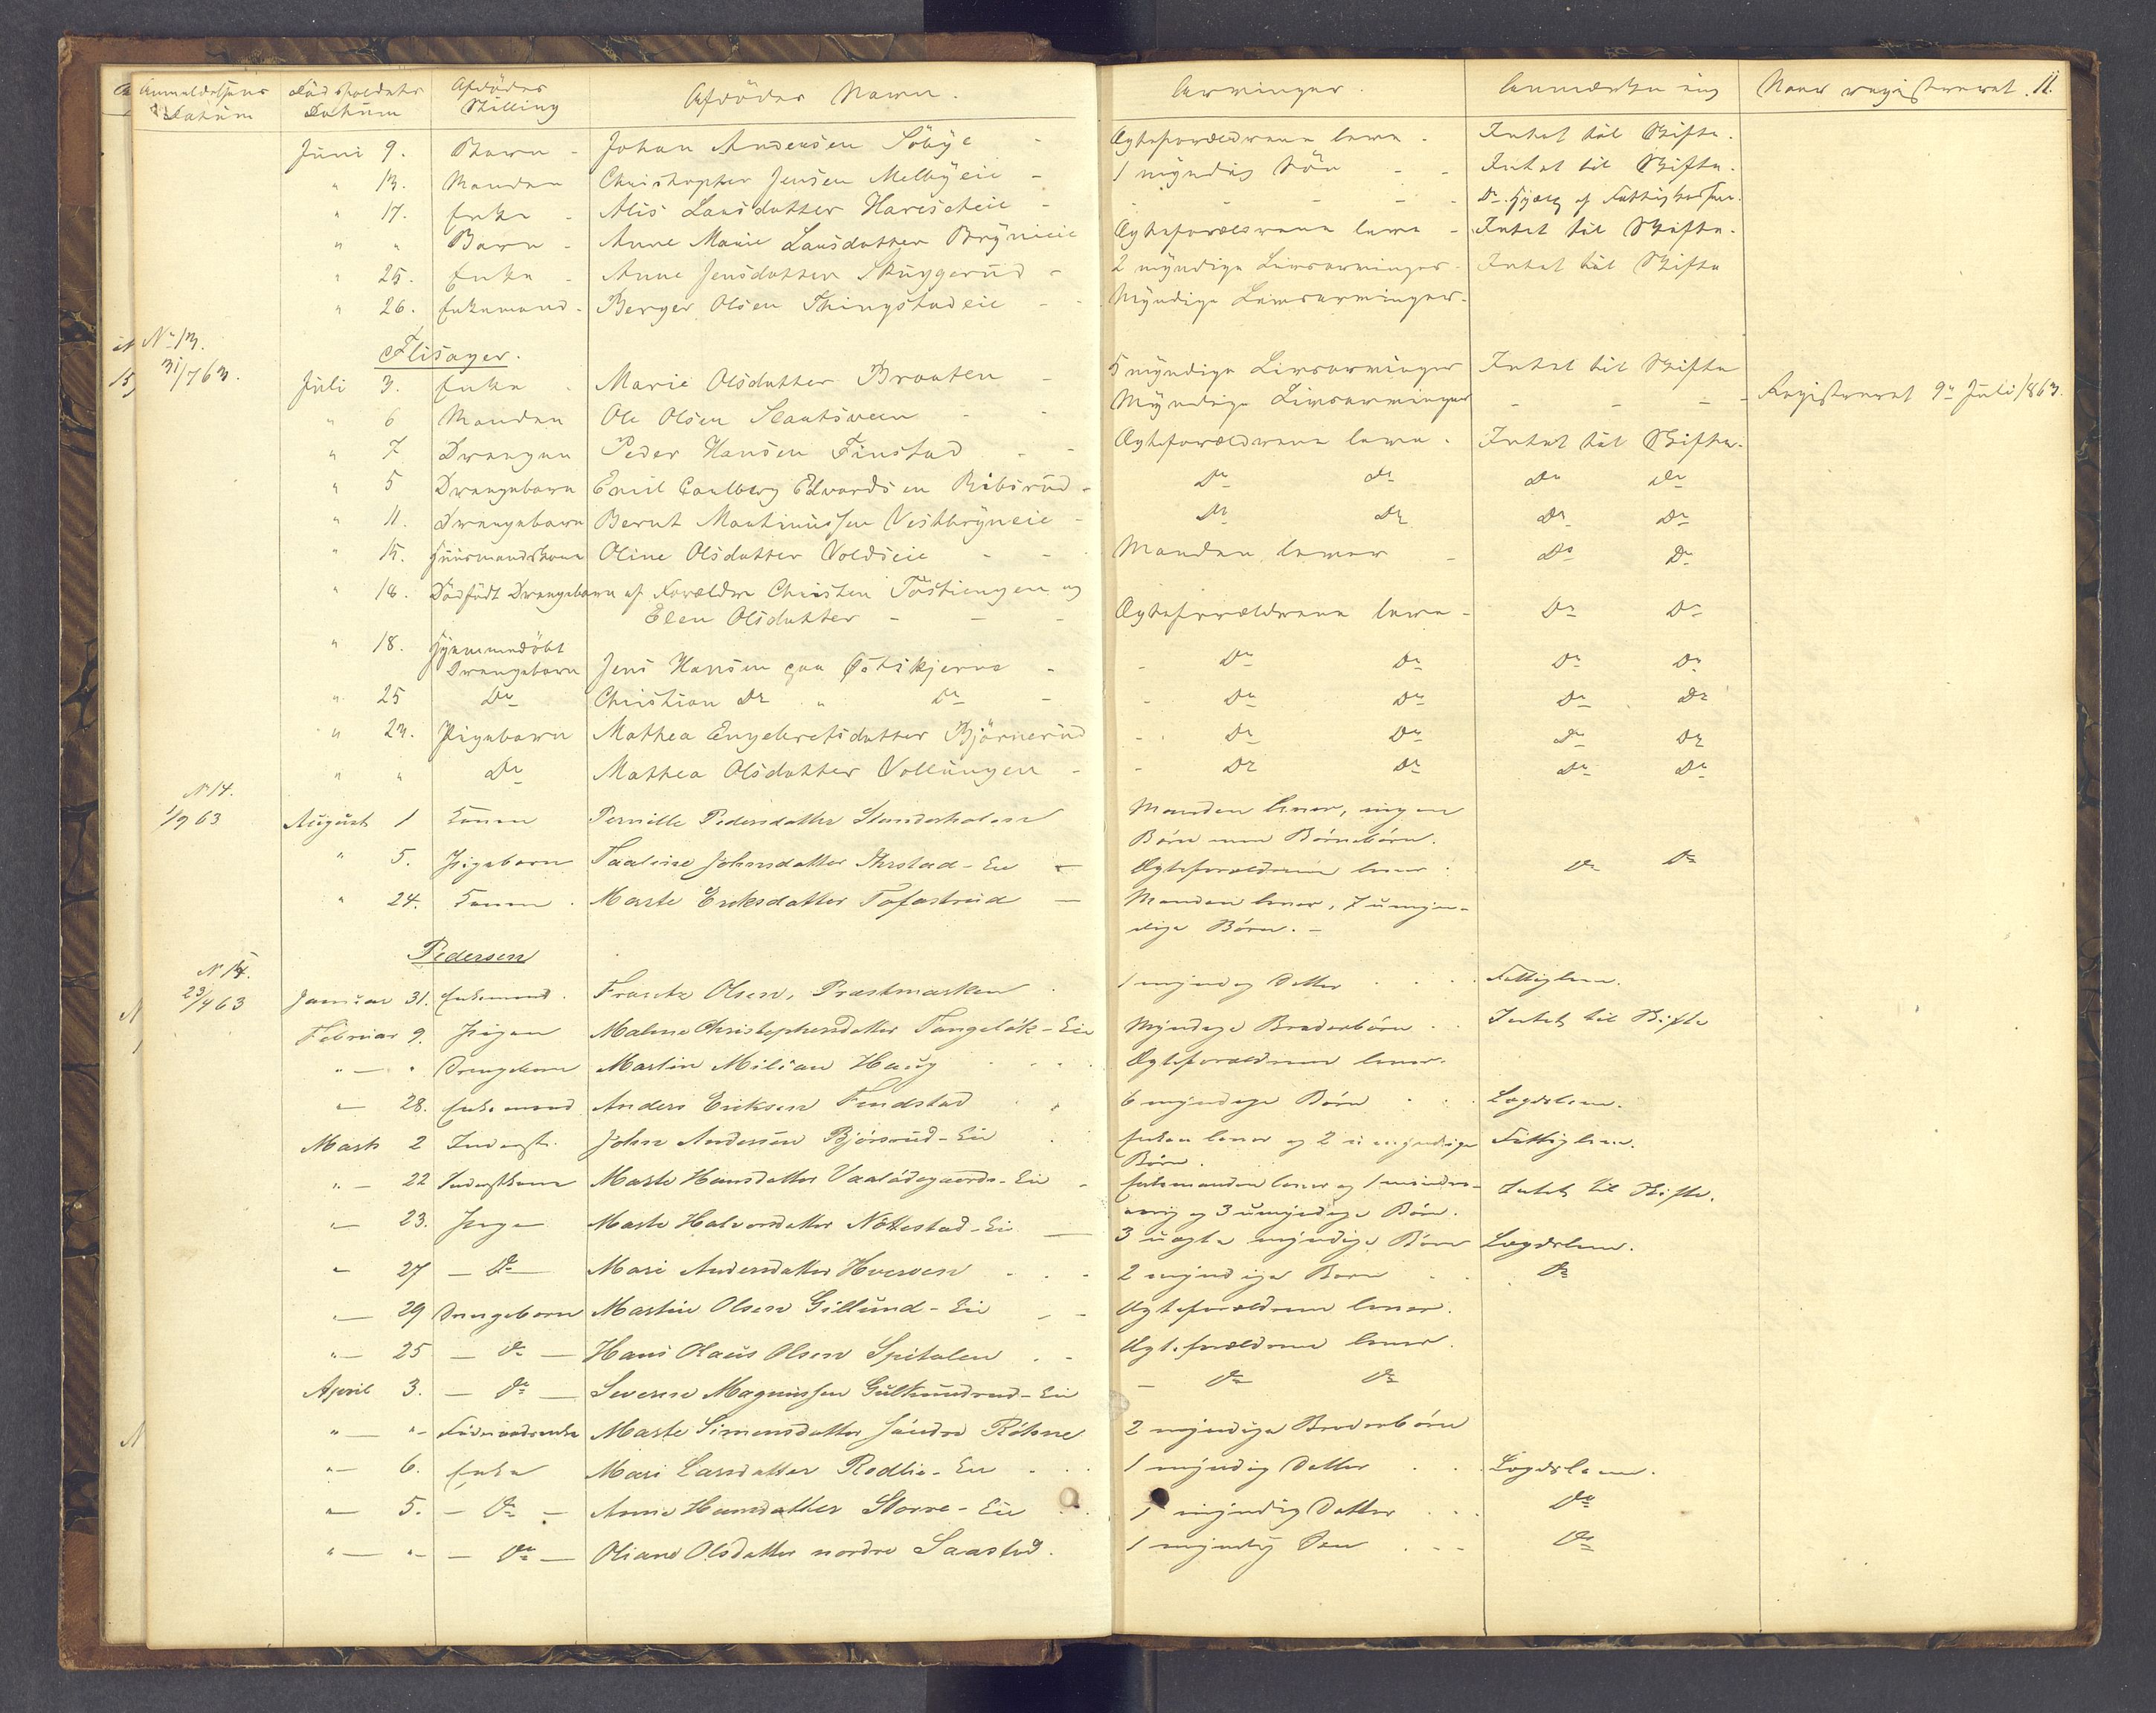 Anmeldelsens Datum | Dødsfaldets Datum | Afdødes Stilling | Afdødes Navn. | Arvinger. | Anmærkning | Naar registreret. 11.
Juni 9. Barn - Johan Andersen Söbye - Ægteforældrene leve - Intet til Skifte.
" 13. Manden Christopher Jensen Melbyeie - 1 myndig Sön - - Intet til Skifte.
" 17. Enke - Alis Larsdatter Harescheie - - - - Do. Hjælp af Fattigkassen.
" " Barn - Anne Marie Larsdatter Brynieie Ægteforældrene leve - Intet til Skifte.
" 25. Enke - Anne Jensdatter Skuggerud - 2 myndige Livsarvinger - Intet til Skifte
" 26. Enkemand - Berger Olsen Thingstadeie - - Myndige Livsarvinger -
No 13.
31/7 63.
Flisager.
Juli 3. Enke - Marie Olsdatter Braaten - 5 myndige Livsarvinger Intet til Skifte
" 6 Manden Ole Olsen Slaatsveen - - Myndige Livsarvinger - - - Registreret 9de Juli 1863.
" 7 Drengen Peder Hansen Finstad - - Ægteforældrene leve - Intet til Skifte.
" 5 Drengebarn Emil Carlberg Edvardsen Ribsrud - Do Do Do Do
" 11. Drengebarn Bernt Martinussen Vestbryneie - Do Do Do Do
" 15. Huusmandskone Oline Olsdatter Voldseie - - Manden lever - Do Do
" 18. Dødfødt Drengebarn af Forældre Christen Tostiengen og
Elen Olsdatter - - - Ægteforældrene leve - Do Do
" 18. Hjemmedöbt
Drengebarn Jens Hansen paa Östskjerve - - Do Do Do Do
" 25 Do Christian Do " Do - - Do Do Do Do
" 23. Pigebarn Mathea Engebretsdatter Björnerud - Do Do Do Do
" " Do Mathea Olsdatter Vollungen - - Do Do Do Do
N 14.
1/9 63
August 1 Konen Pernille Pedersdatter Stenderholen Manden lever, ingen
Börn men Börnebörn.
" 5. Pigebarn Taaline Johnsdatter Thrstad-Eie - Ægteforældrene lever. Do Do
" 24. Konen . Marte Eriksdatter Tofastrud - Manden lever, 7 umyn-
dige Börn. -
Pedersen
N 15.
23/4 63
Januar 31. Enkemand. Frantz Olsen, Præstmarken . 1 myndig Datter . . . . Fattiglem.
Februar 9. Pigen Malene Christophersdatter Tangelök-Eie Myndige Broderbörn . . Intet til Skifte
" — " Drengebarn Martin Milian Haug . - - . Ægteforældrene lever.
" — 28. Enkemand Anders Eriksen Findstad . . 6 myndige Börn . . . Lægdslem.
Marts 2 Inderst. John Andersen Björsrud-Eie . Enken lever og 2 umyndige Fattiglem.
Börn.
" — 22 Inderstkone Marte Hansdatter Vaalödegaards-Eie - Enkemanden lever og 1 mindre- Intet til Skifte.
aarig og 3 umyndige Börn.
" — 23. Pige Marte Halvorsdatter Nöttestad-Eie — 3 uægte myndige Börn Lægdslem.
" 27 - Do - Mari Andersdatter Hverven . . . 2 myndige Börn . . Do
" — 29 Drengebarn Martin Olsen Gillund-Eie - - Ægteforældrene lever.
" — 25 - Do - Hans Olaus Olsen Spitalen . - Ægteforældrene lever.
April 3. - Do - Severin Magnussen Gulkundrud-Eie - Do Do
" — " Föderaadsenke Marte Simensdatter söndre Röhne 2 myndige Broderbörn
" — 6. Enke Mari Larsdatter Rodlie-Eie . . . 1 myndig Datter . . . Lægdslem.
" — 5. - Do - Anne Hansdatter Storre-Eie . . 1 myndig Datter . . . Do
" — " - Do - Oliane Olsdatter nordre Saastad. 1 myndig Sön . . . Do